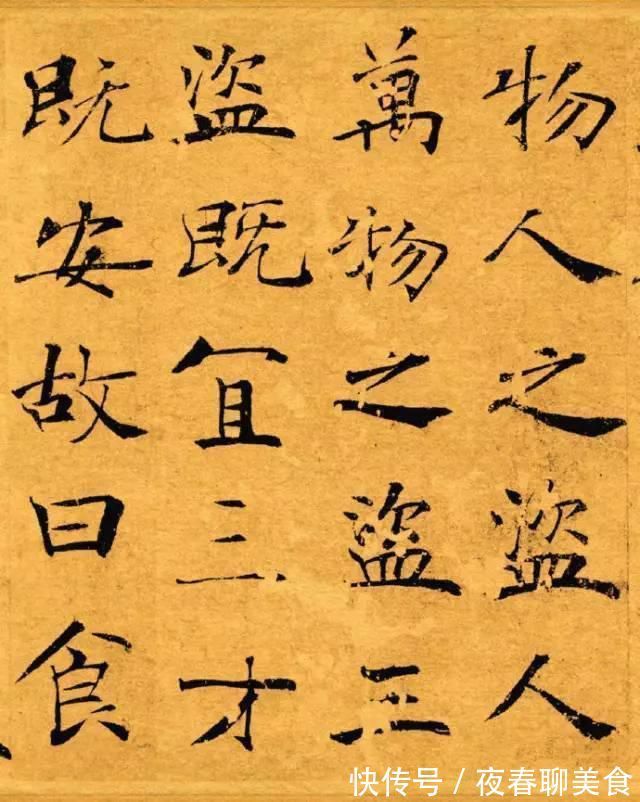 物人之盜人
萬物之盜三
盜既冝三才
既安故曰食
快传号 / 夜春聊美食